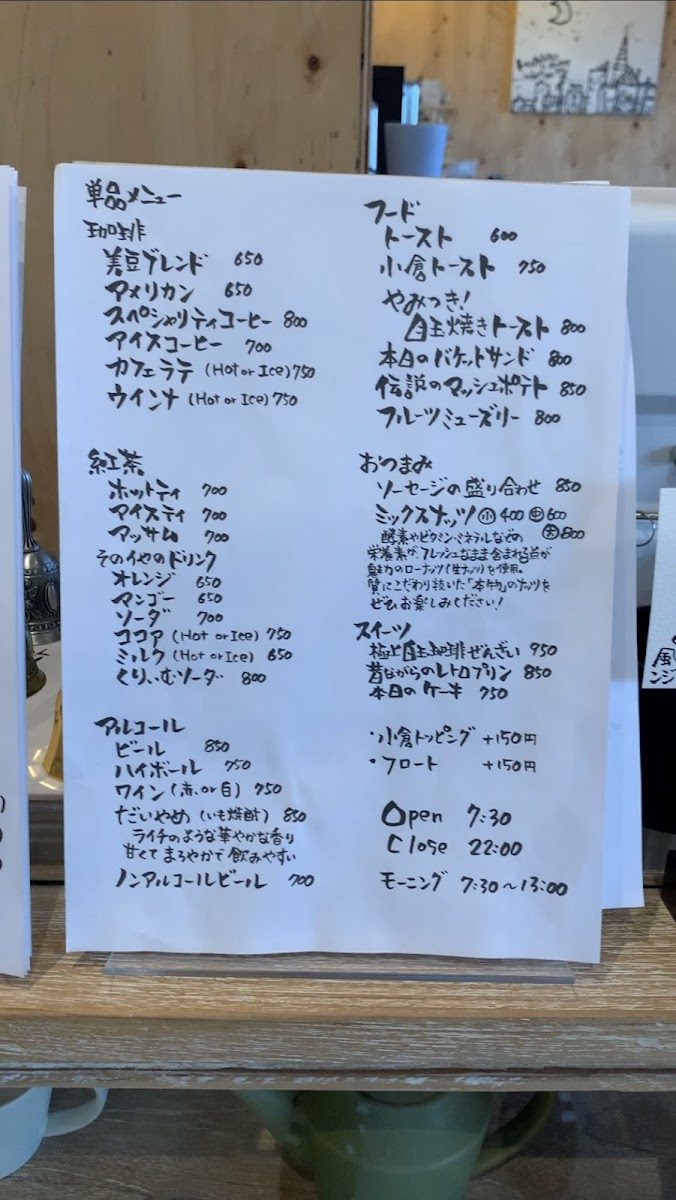 単品メニュー
珈琲
美豆ブレンド 650
アメリカン 650
スペシャリティコーヒー 800
アイスコーヒー 700
カフェラテ (Hot or Ice) 750
ウインナ (Hot or Ice) 750
紅茶
ホットティ 700
アイスティ 700
アッサム 700
その他のドリンク
オレンジ 650
マンゴー 650
ソーダ 700
ココア (Hot or Ice) 750
ミルク (Hot or Ice) 650
くりぃむソーダ 800
アルコール
ビール 850
ハイボール 750
ワイン (赤 or 白) 750
だいやめ (いも焼酎) 850
ライチのような華やかな香り
甘くてまろやかで飲みやすい
ノンアルコールビール 700
フード
トースト 600
小倉トースト 750
やみつき!
自主焼きトースト 800
本日のバケットサンド 800
伝説のマッシュポテト 850
フルーツミューズリー 800
おつまみ
ソーセージの盛り合わせ 850
ミックスナッツ ㊙小 400 ㊥ 600
大 800
酵素やビタミン・ミネラルなどの
栄養素が、フレッシュなまま含まれる点が
魅力のローナッツ(生ナッツ)を使用。
質にこだわり抜いた「本物」のナッツを
ぜひお楽しみください!
スイーツ
極上自主珈琲ぜんざい 950
昔ながらのレトロプリン 850
本日のケーキ 750
・小倉トッピング +150円
・フロート +150円
Open 7:30
Close 22:00
モーニング 7:30~13:00
風
ンジ